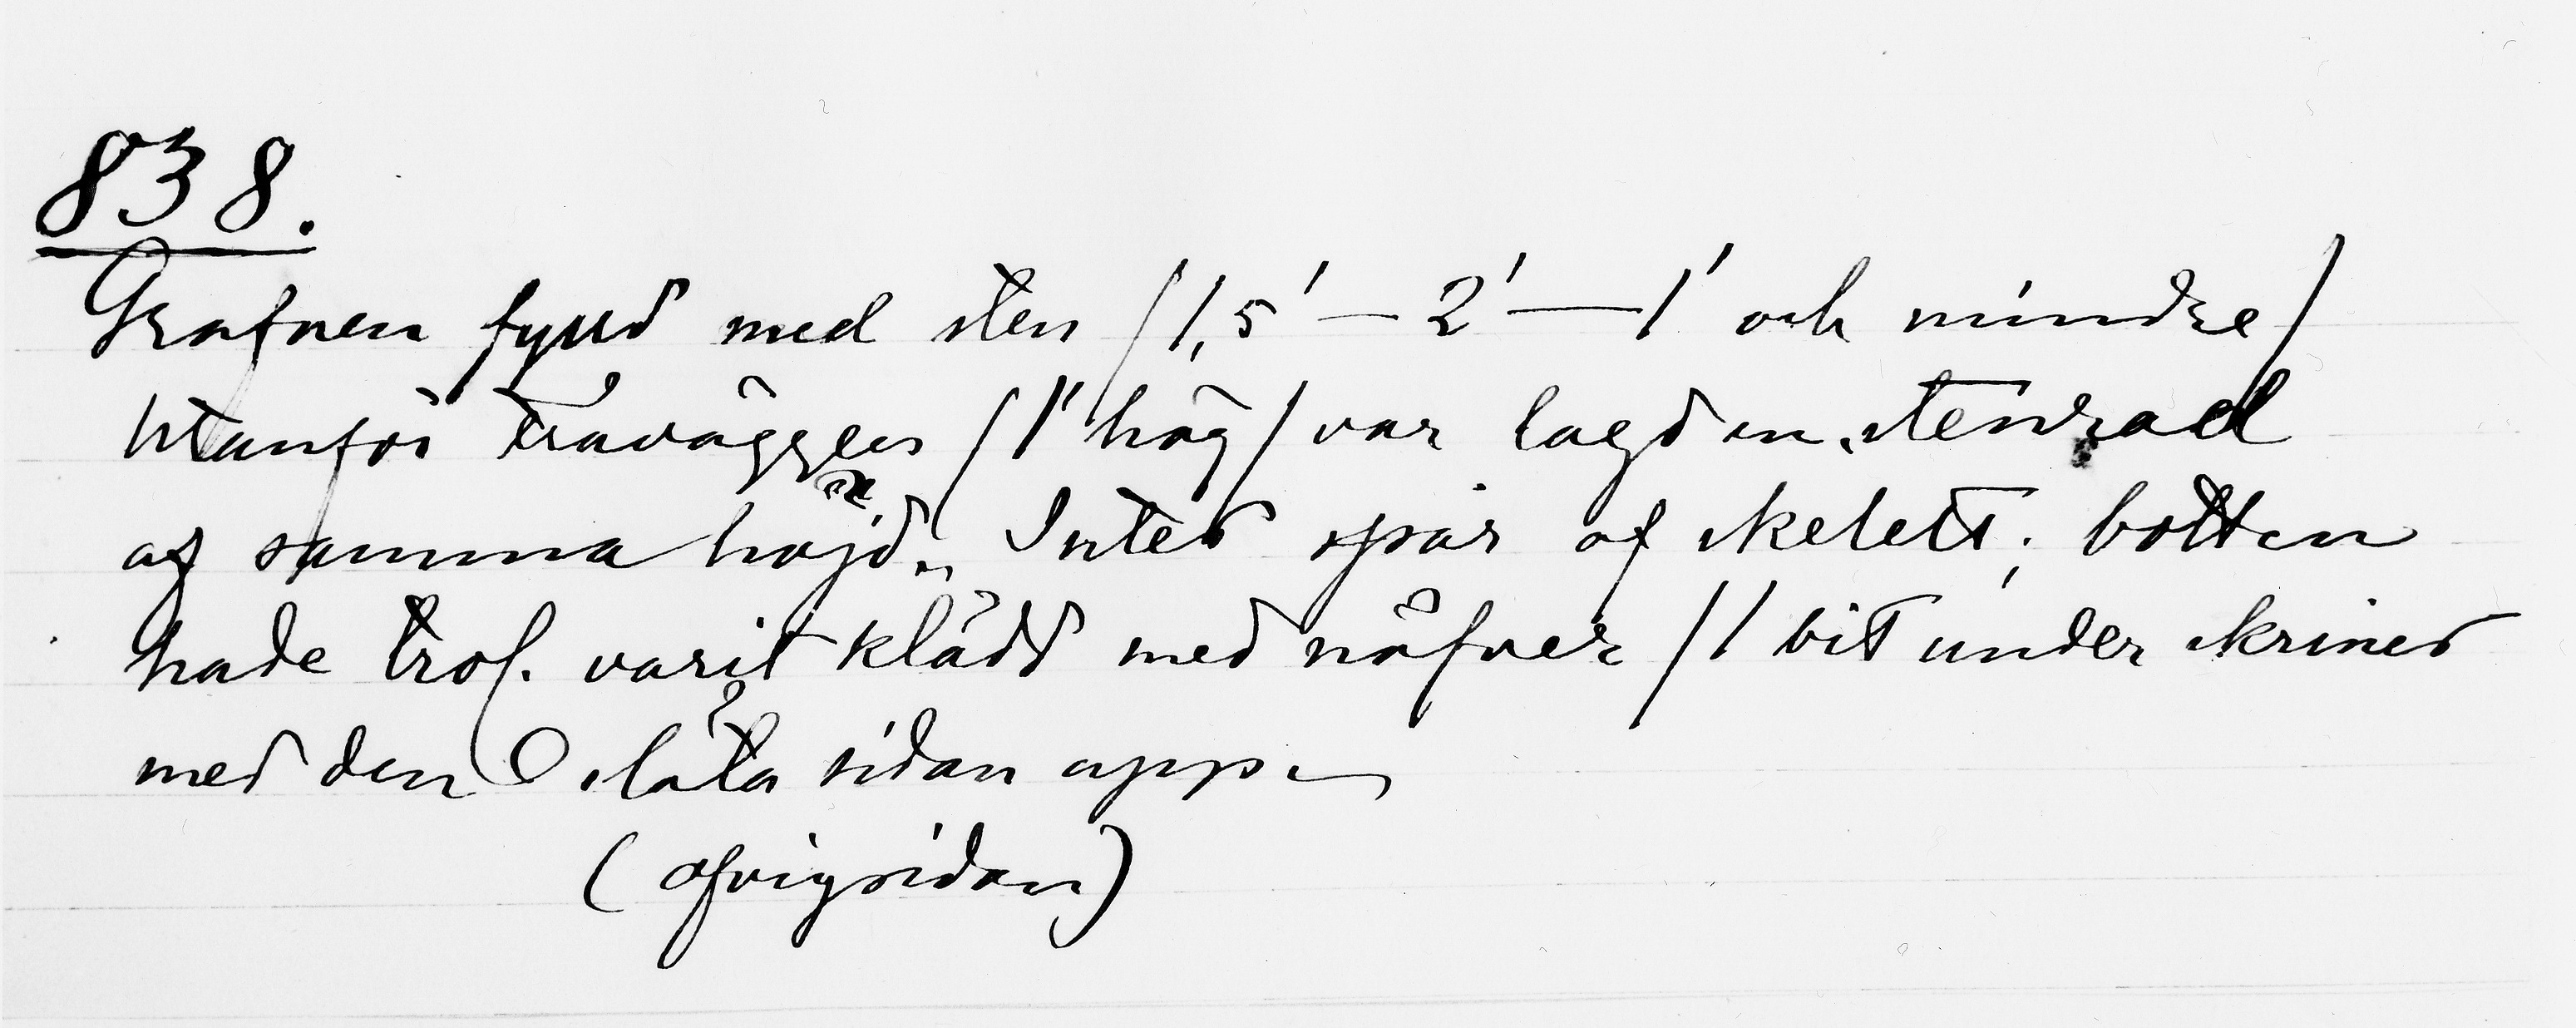 838.
Grafven fylld med sten /1,5' — 2' — 1' och mindre/
Utanför träväggen /1' hög/ var lagd en stenrad
af samma höjd. Intet spår af skelett; botten
hade trol. varit klädd med näfver /1 bit under skrinet
med den släta sidan upp.
(afvigsidan)